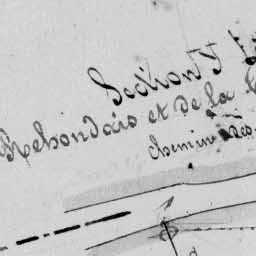 Section I
Rehondais et de la
chemin des